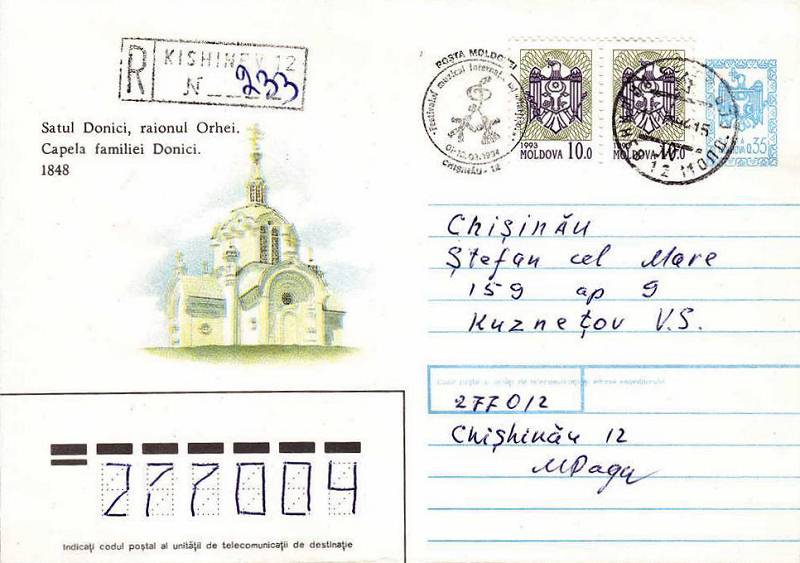 R KISHINEV 12
N 233
Satul Donici, raionul Orhei.
Capela familiei Donici.
1848
POȘTA MOLDOVEI
Festivalul muzical internaț.
01-10.03.1994
CHIȘINĂU - 12
1993
MOLDOVA 10.0
1993
MOLDOVA 10.0
MOLDOVA 0.35
Chișinău
Ștefan cel Mare
159 ap 9
Kuznețov V.S.
Codul poștal al unității de telecomunicații și adresa expeditorului
277012
Chișhinău 12
277004
Indicați codul poștal al unității de telecomunicații de destinație